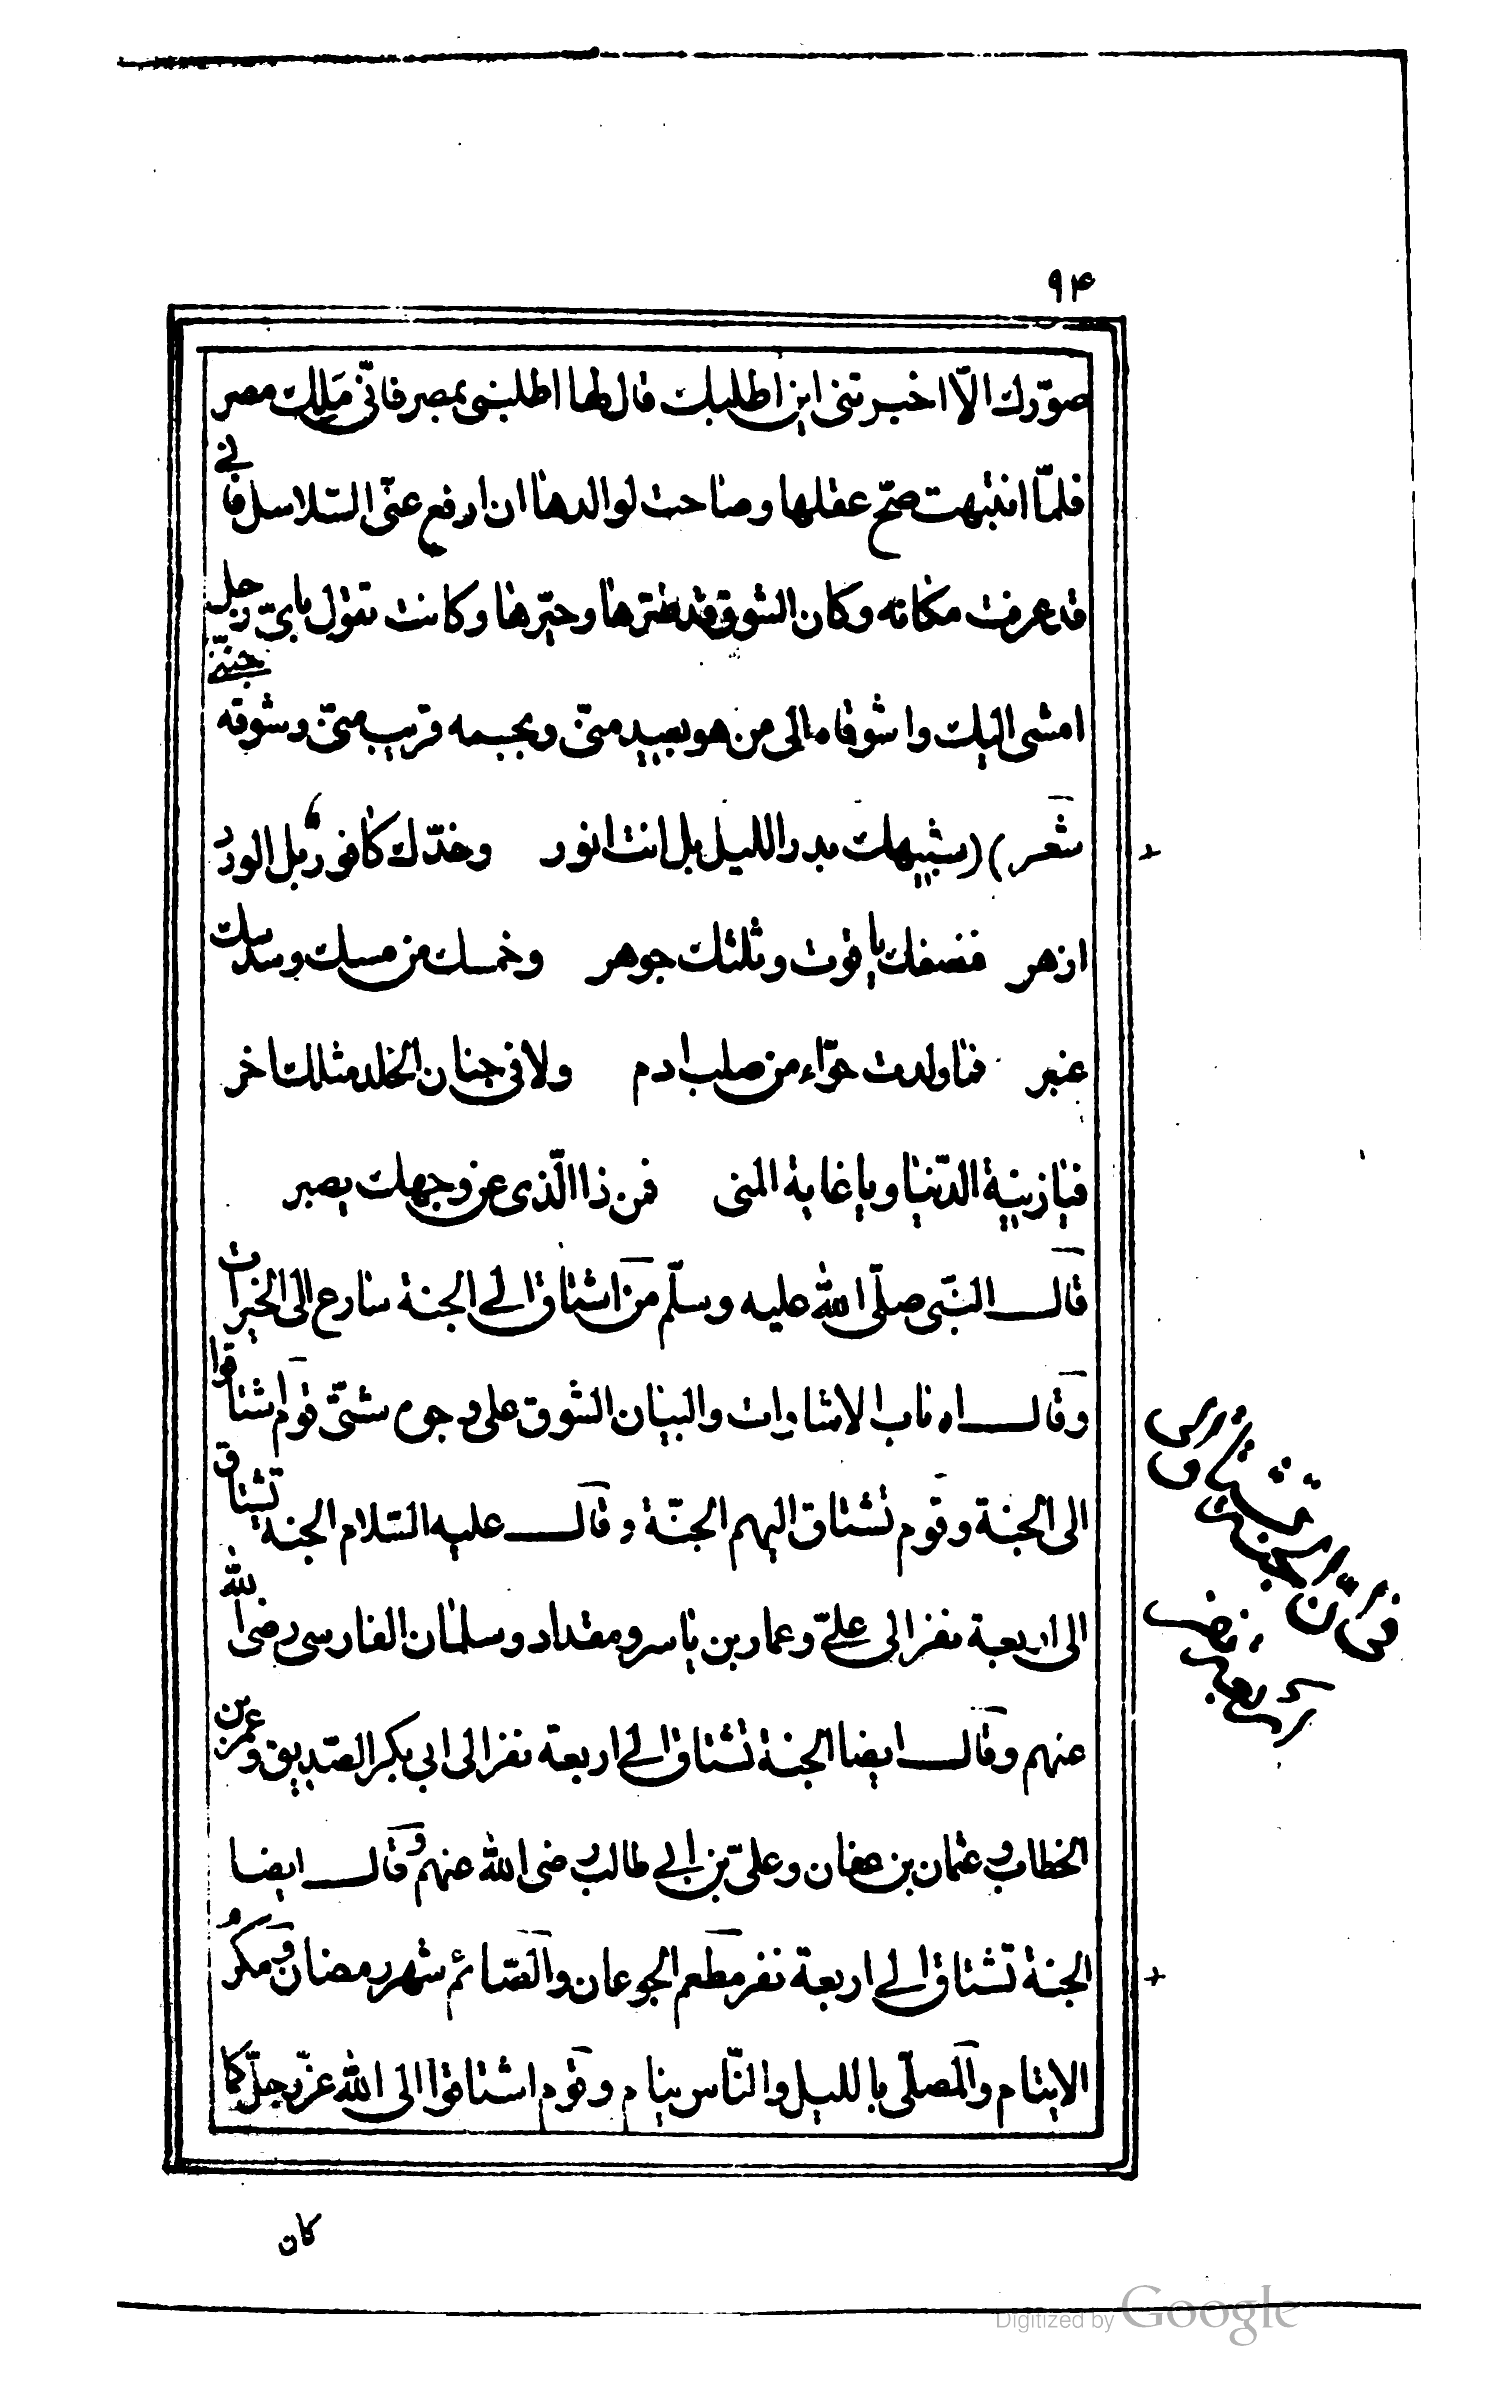 ۹۴
صوّرك الّا اخبرتنى اين اطلبك قال لها اطلبنى بمصر فانّى ملك مصر
فلمّا انتبهت صحّ عقلها وصاحت لوالدها ان ارفع عنّى السّلاسل فانى
قد عرفت مكانه وكان الشوق قد ضرّها وحيّرها وكانت تقول باىّ رجل
امشى اليك وا شوقاه الى من هو بعيد منّى وبجسمه قريب منّى وشوقه جننى
شعر) (شبيهك بدر الليل بل انت انور وخدّك كافور بل الورد
ازهر فنصفك ياقوت وثلثك جوهر وخمسك من مسك وسدسك
عنبر فما ولدت حوّاء من صلب ادم ولا فى جنان الخلد مثلك اخر
فيا زينة الدّنيا ويا غاية المنى فمن ذا الّذى عن وجهك يصبر
قال النّبى صلّى الله عليه وسلّم من اشتاق الى الجنة سارع الى الخيرات
وقال ارباب الاشارات والبيان الشوق على وجوه شتّى قوم اشتاقوا
الى الجنة وقوم تشتاق اليهم الجنّة وقال عليه السّلام الجنة تشتاق
الى اربعة نفر الى علىّ وعمار بن ياسر ومقداد وسلمان الفارسى رضى الله
عنهم وقال ايضا الجنة تشتاق الى اربعة نفر الى ابى بكر الصّديق وعمر بن
الخطاب وعثمان بن عفان وعلىّ بن ابى طالب رضى الله عنهم وقال ايضا
الجنة تشتاق الى اربعة نفر مطعم الجوعان والصّائم شهر رمضان ومكرم
الايتام والمصلّى بالليل والنّاس ينام وقوم اشتاقوا الى الله عزّ وجلّ كما
فى أنّ الجنة تشتاق الى
أربعة نفر
كان
Digitized by Google